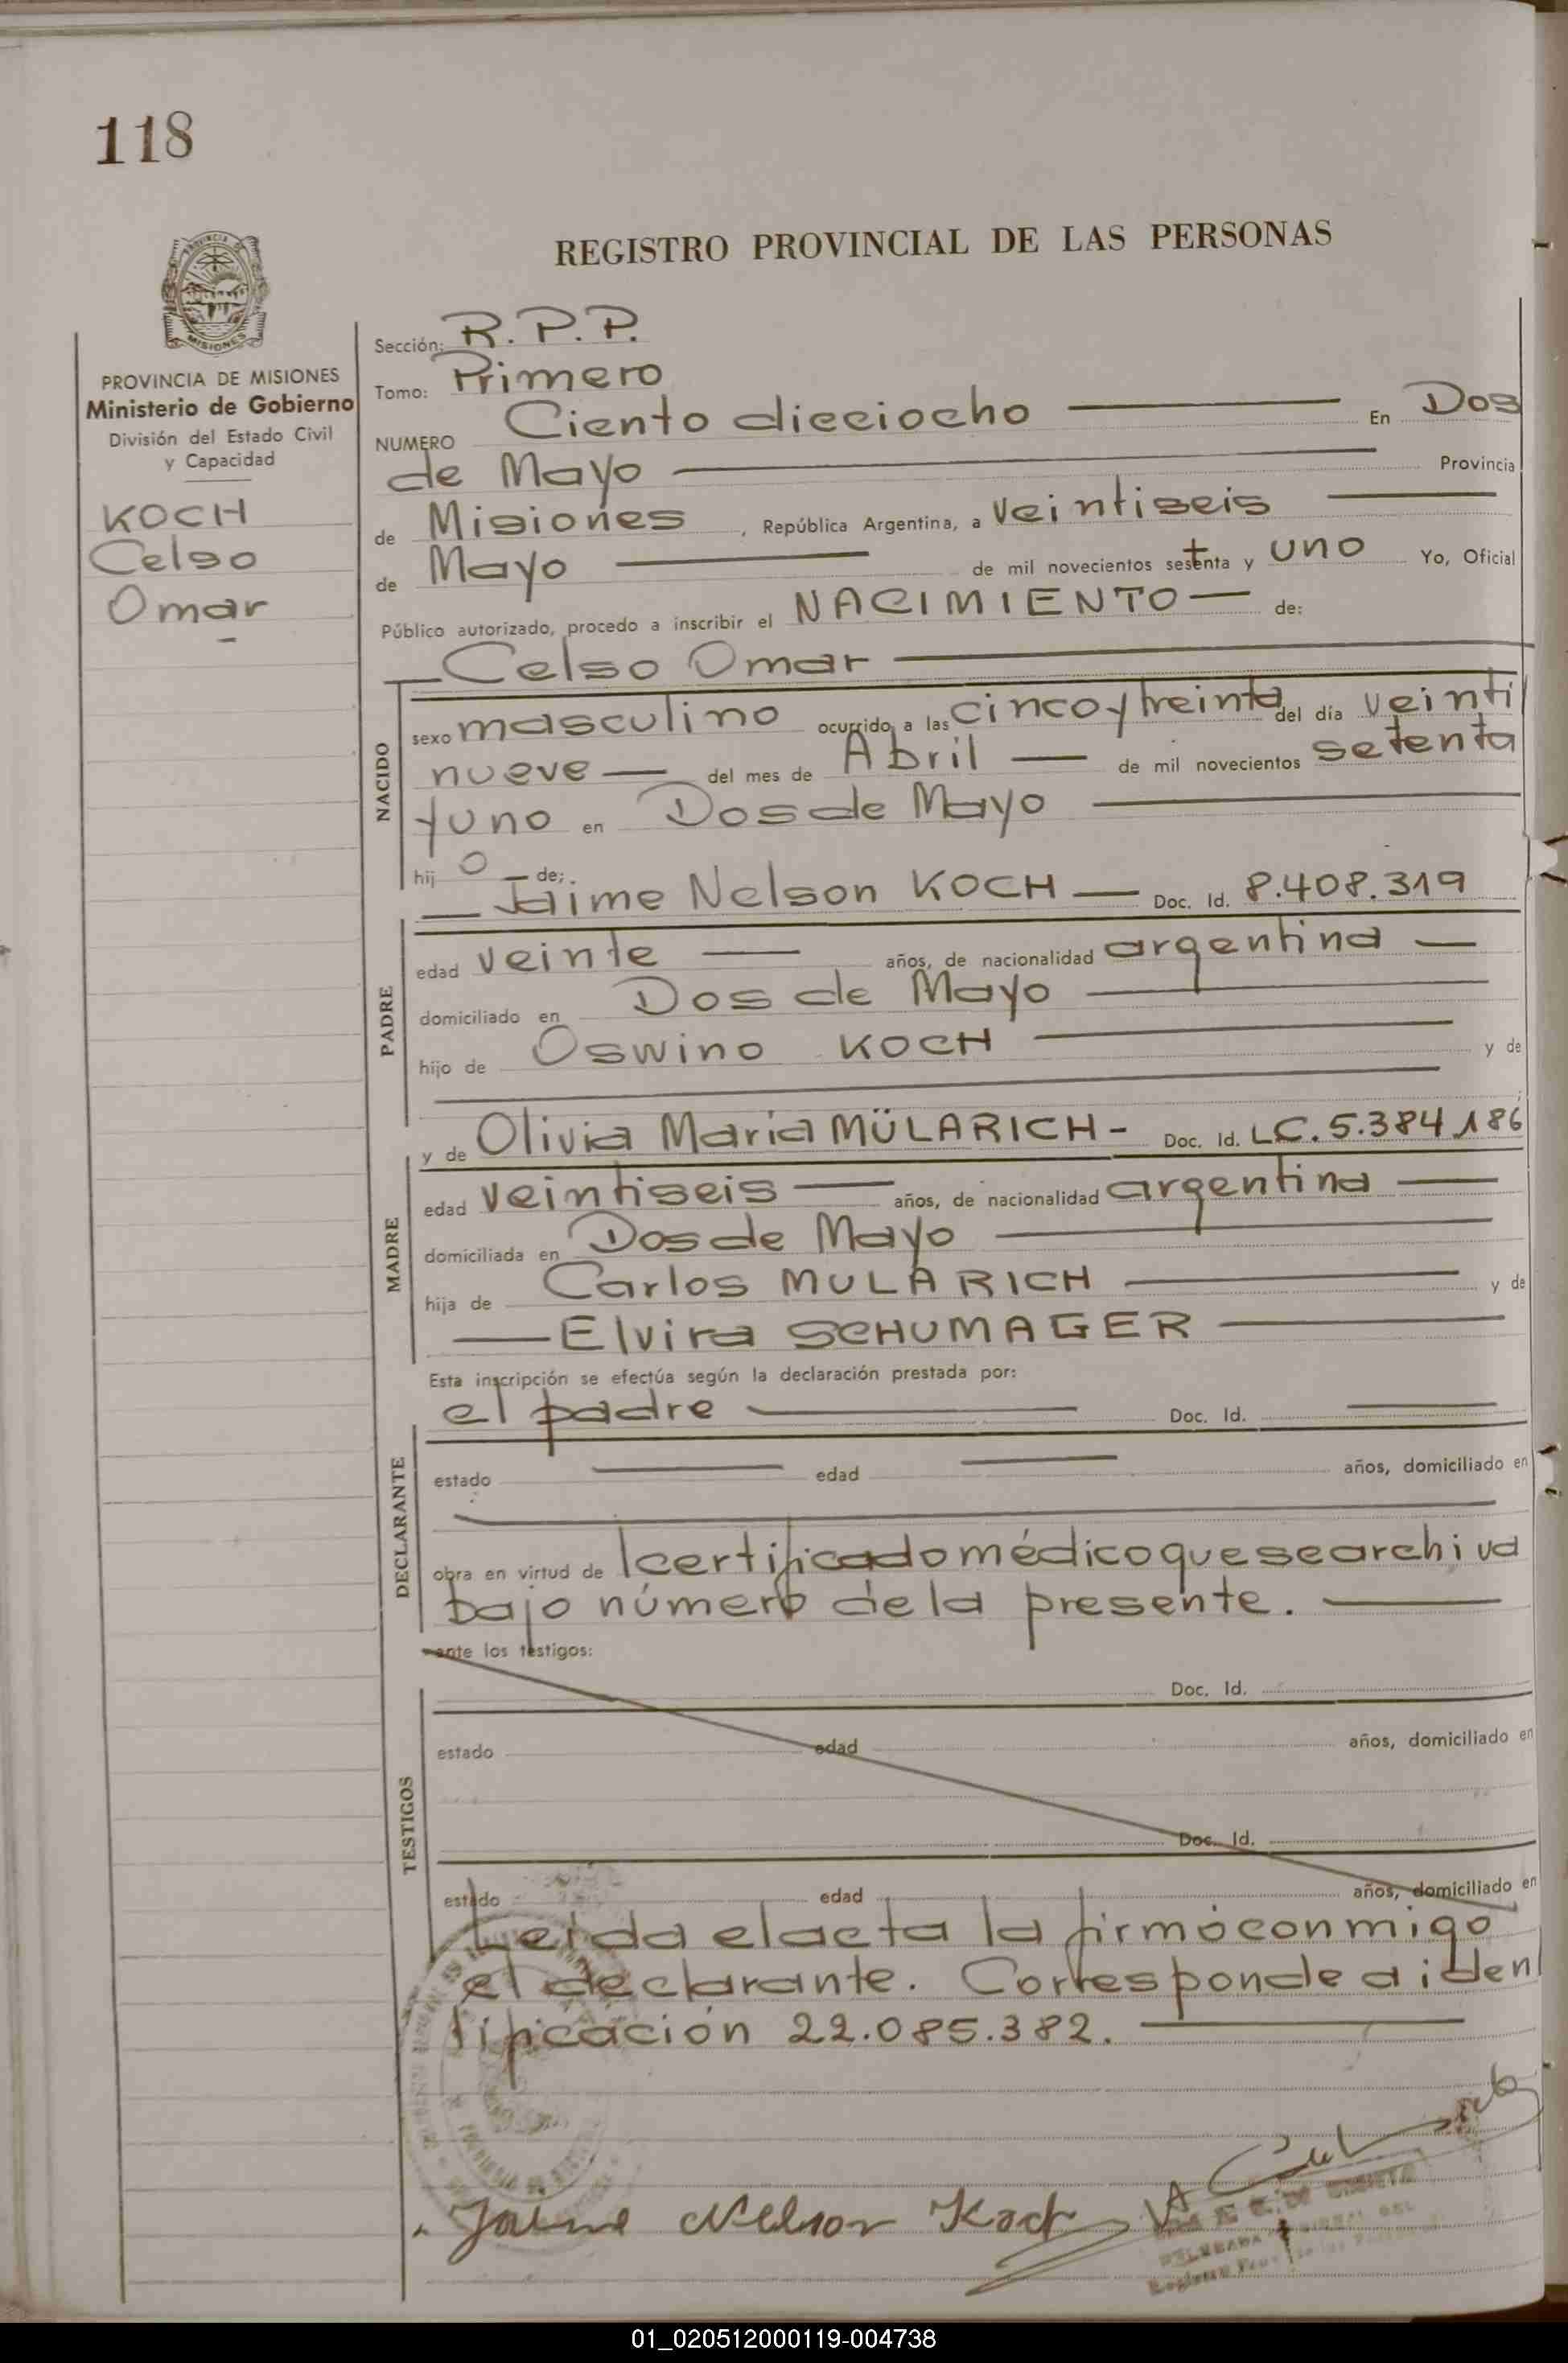 118
REGISTRO PROVINCIAL DE LAS PERSONAS
MISIONES
PROVINCIA DE MISIONES
Ministerio de Gobierno
División del Estado Civil
y Capacidad
KOCH
Celso
Omar
Sección: R. P. P.
Tomo: Primero
NUMERO Ciento dieciocho En Dos
de Mayo Provincia
de Misiones , República Argentina, a veintiseis
de Mayo de mil novecientos setenta y uno Yo, Oficial
Público autorizado, procedo a inscribir el NACIMIENTO de:
Celso Omar
NACIDO
sexo masculino ocurrido a las cinco y treinta del día veinti
nueve del mes de Abril de mil novecientos setenta
y uno en Dos de Mayo
hij o de:
Jaime Nelson KOCH Doc. Id. 8.408.319
PADRE
edad veinte años, de nacionalidad argentina
domiciliado en Dos de Mayo
hijo de Oswino KOCH y de
y de Olivia Maria MÜLARICH - Doc. Id. L.C. 5.384.186
MADRE
edad veintiseis años, de nacionalidad argentina
domiciliada en Dos de Mayo
hija de Carlos MULARICH y de
Elvira SCHUMAGER
Esta inscripción se efectúa según la declaración prestada por:
el padre Doc. Id.
DECLARANTE
estado edad años, domiciliado en
obra en virtud de l certificado médico que se archiva
bajo número de la presente.
ante los testigos:
Doc. Id.
TESTIGOS
estado edad años, domiciliado en
Doc. Id.
estado edad años, domiciliado en
Leida el acta la firmó conmigo
el declarante. Corresponde a iden
tificación 22.085.382.
Jaime Nelson Koch
01_020512000119-004738